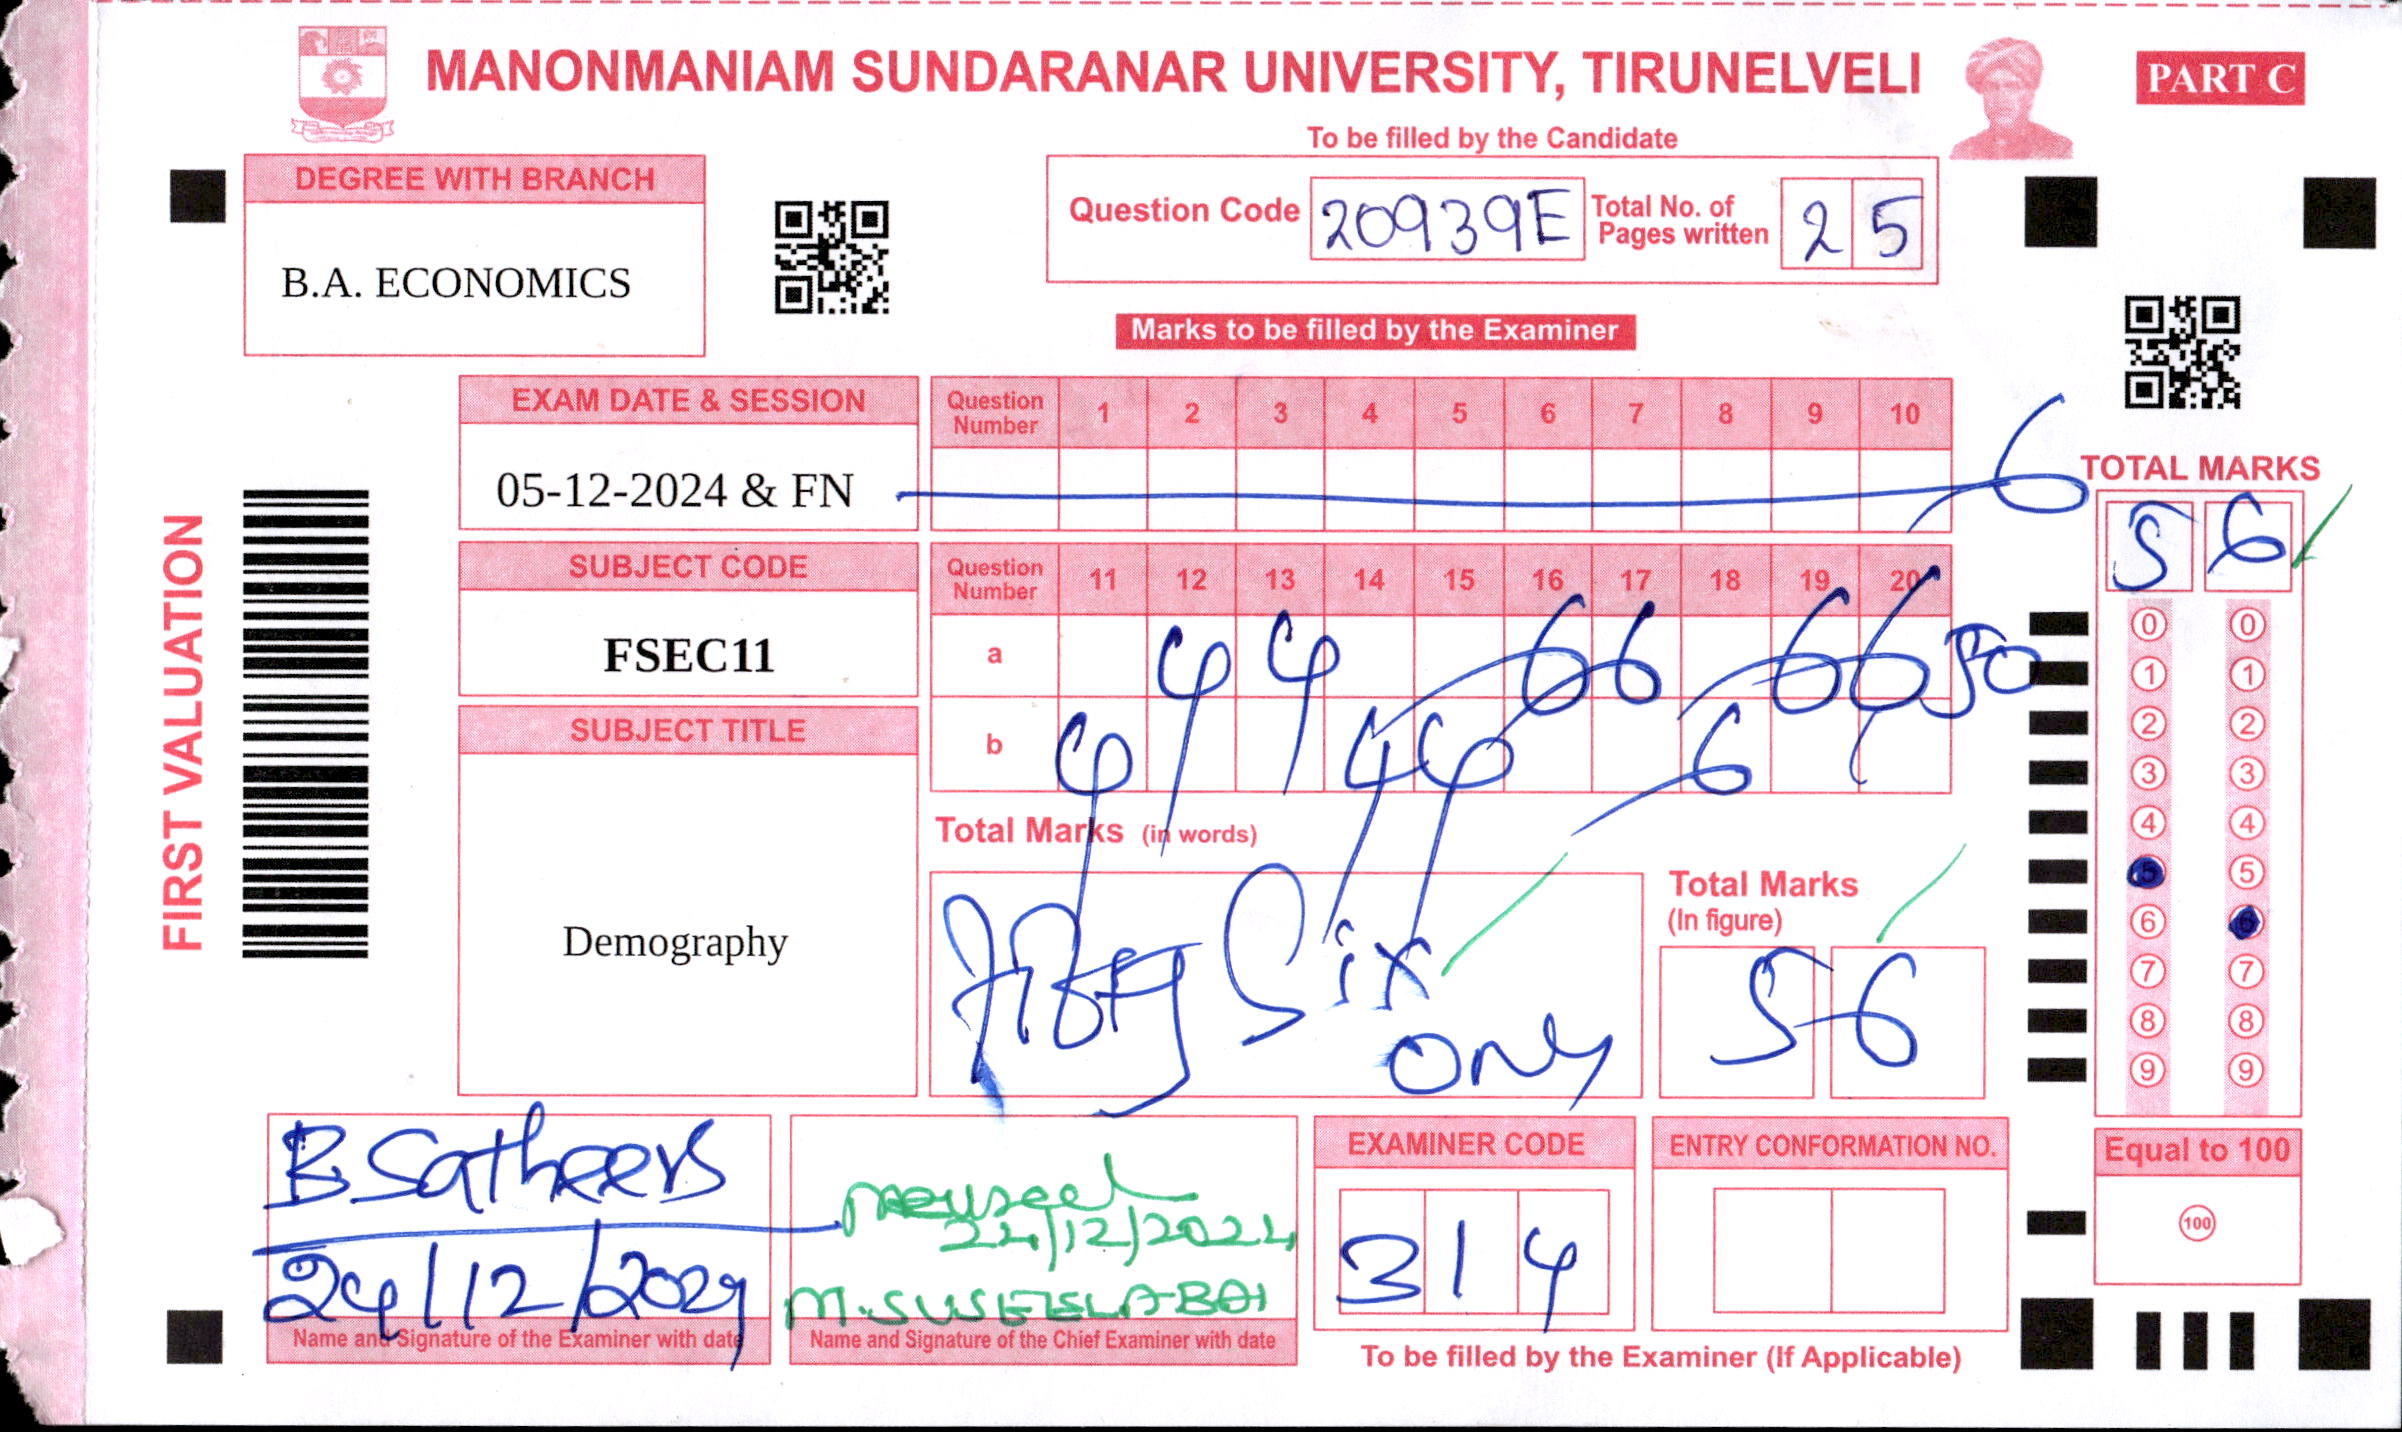 MANONMANIAM SUNDARANAR UNIVERSITY, TIRUNELVELI
PART C
To be filled by the Candidate
DEGREE WITH BRANCH
B.A. ECONOMICS
Question Code 20939E Total No. of Pages written 25
Marks to be filled by the Examiner
EXAM DATE & SESSION
05-12-2024 & FN
Question Number 1 2 3 4 5 6 7 8 9 10
6
TOTAL MARKS
56
SUBJECT CODE
FSEC11
Question Number 11 12 13 14 15 16 17 18 19 20
a 4 4 6 6 6 6 50
b 4 4 4 6
SUBJECT TITLE
Demography
FIRST VALUATION
Total Marks (in words)
Fifty Six
only
Total Marks
(In figure)
56
0 0
1 1
2 2
3 3
4 4
5 5
6 6
7 7
8 8
9 9
B Satheers
24/12/2024
Name and Signature of the Examiner with date
24/12/2024
M.SUSEELA BAI
Name and Signature of the Chief Examiner with date
EXAMINER CODE
314
ENTRY CONFORMATION NO.
Equal to 100
100
To be filled by the Examiner (If Applicable)